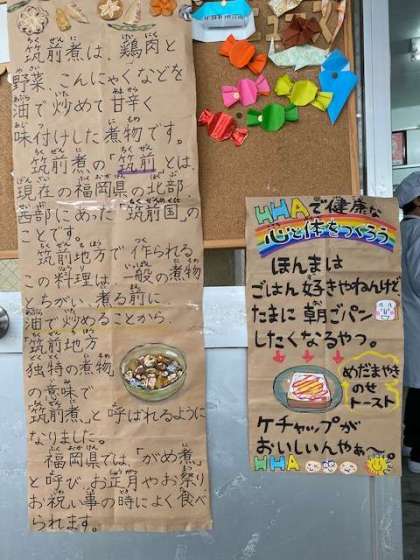 筑前煮は、鶏肉と
野菜、こんにゃくなどを
油で炒めて甘辛く
味付けした煮物です。
筑前煮の「筑前」とは、
現在の福岡県の北部、
西部にあった「筑前国」の
ことです。
筑前地方で作られる
この料理は、一般の煮物
とちがい、煮る前に
油で炒めることから
「筑前地方
独特の煮物」
の意味で
「筑前煮」と呼ばれるように
なりました。
福岡県では、「がめ煮」
と呼び、お正月やお祭り
お祝い事の時によく食べ
られます。
HHAで健康な
心と体をつくろう
ほんまは
ごはん好きやねんけど
たまに朝ごパン
したくなるやつ。
めだまやき
のせ
トースト
ケチャップが
おいしいんやぁ〜。
HHA